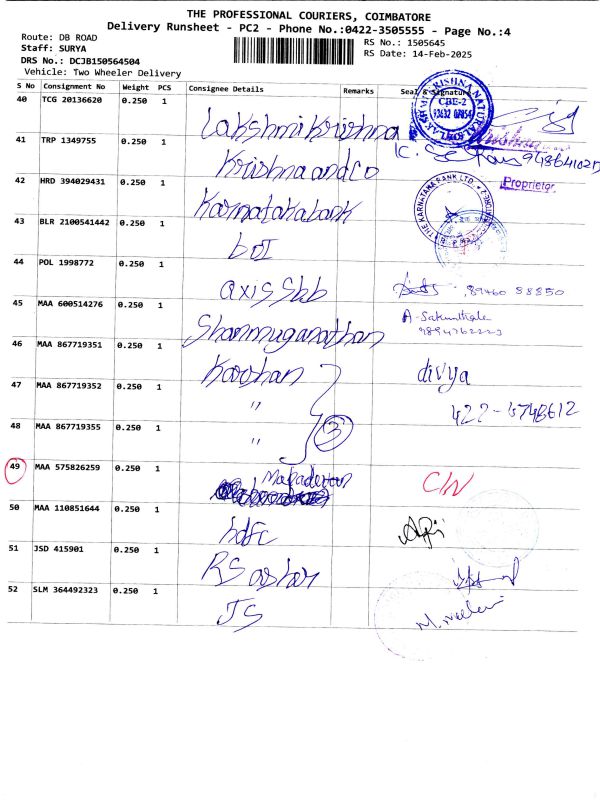 THE PROFESSIONAL COURIERS, COIMBATORE
Delivery Runsheet - PC2 - Phone No.:0422-3505555 - Page No.:4
Route: DB ROAD
RS No.: 1505645
Staff: SURYA
RS Date: 14-Feb-2025
DRS No.: DCJB150564504
Vehicle: Two Wheeler Delivery
S No Consignment No Weight PCS Consignee Details Remarks Seal & Signature
40 TCG 20136620 0.250 1 Lakshmikrishna
CBE-2
41 TRP 1349755 0.250 1 Krishna and Co
42 HRD 394029431 0.250 1 Karnataka bank
THE KARNATAKA BANK LTD.
Proprietor
43 BLR 2100541442 0.250 1 bOI
44 POL 1998772 0.250 1 axis Sbb 89460 88850
45 MAA 600514276 0.250 1 Shanmuganathan A-Sakunthala
9894762223
46 MAA 867719351 0.250 1 Karthan divya
47 MAA 867719352 0.250 1 " 422-4748612
48 MAA 867719355 0.250 1 " 3
49 MAA 575826259 0.250 1 Mahadevan C/N
50 MAA 110851644 0.250 1 hdfc
51 JSD 415901 0.250 1 RS
52 SLM 364492323 0.250 1 JS